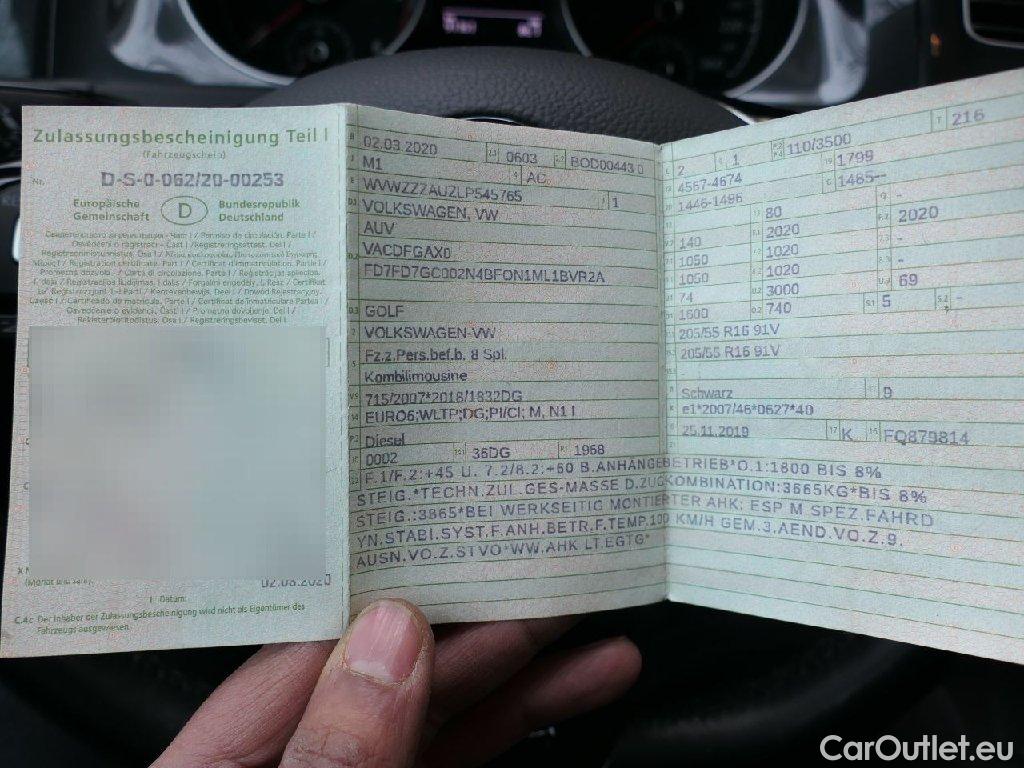 Zulassungsbescheinigung Teil I
(Fahrzeugschein)
Nr. D-S-0-062/20-00253
Europäische Gemeinschaft
D
Bundesrepublik Deutschland
02.08.2020
I Datum:
C.4c Der Inhaber der Zulassungsbescheinigung wird nicht als Eigentümer des
Fahrzeugs ausgewiesen.
02.03.2020 0603 BOD00443 0
M1 AC
WVWZZZAUZLP545765 1
VOLKSWAGEN, VW
AUV
VACDFGAX0
FD7FD7GC002N4BFON1ML1BVR2A
GOLF
VOLKSWAGEN-VW
Fz.z.Pers.bef.b. 8 Spl.
Kombilimousine
715/2007*2018/1832DG
EURO6;WLTP;DG;PI/CI; M, N1 I
Diesel
0002 36DG 1968
2 1 110/3500 216
4567-4674 1799
1446-1496 1485--
80 -
140 2020 2020
1050 1020 -
1050 1020 -
74 3000 69
1600 740 5 -
205/55 R16 91V
205/55 R16 91V
Schwarz 9
e1*2007/46*0627*40
25.11.2019 17 K 16 FQ879814
F.1/F.2:+45 U. 7.2/8.2:+60 B.ANHANGEBETRIEB*O.1:1800 BIS 8%
STEIG.*TECHN.ZUL.GES-MASSE D.ZUGKOMBINATION:3665KG*BIS 8%
STEIG.:3865*BEI WERKSEITIG MONTIERTER AHK: ESP M SPEZ.FAHRD
YN.STABI.SYST.F.ANH.BETR.F.TEMP.100 KM/H GEM.3.AEND.VO.Z.9.
AUSN.VO.Z.STVO*WW.AHK LT.EGTG*
CarOutlet.eu